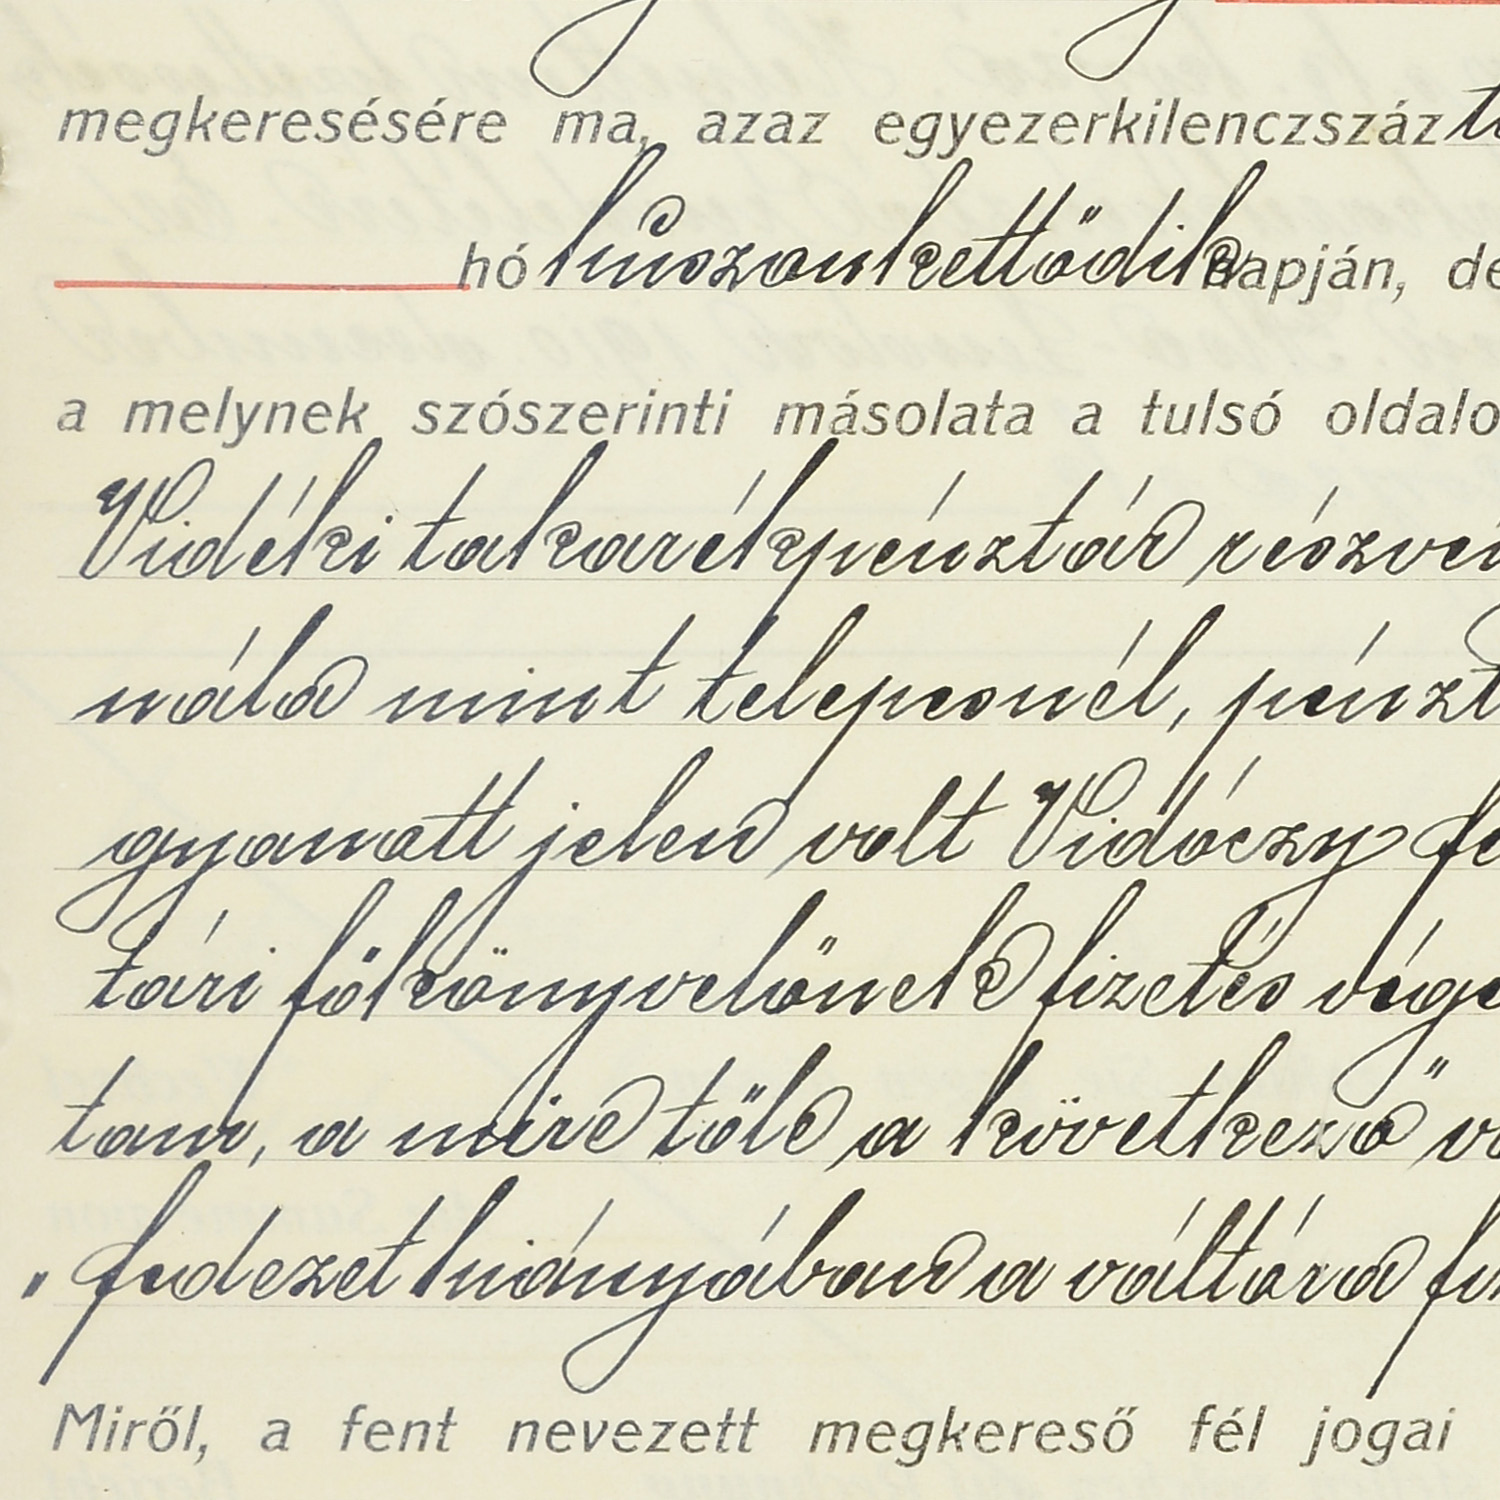 megkeresésére ma, azaz egyezerkilenczszáz
hó huszonkettödik napján, de
a melynek szószerinti másolata a tulsó oldalo
Vidéki takarékpénztár részvé
nála mint telepesnél, pénzt
gyanatt jelen volt Vidóczy fe
tári fölkönyvelönek fizetés vége
tam, a mire töle a következö vá
"fedezet hiányában a váltóra fi
Miről, a fent nevezett megkereső fél jogai